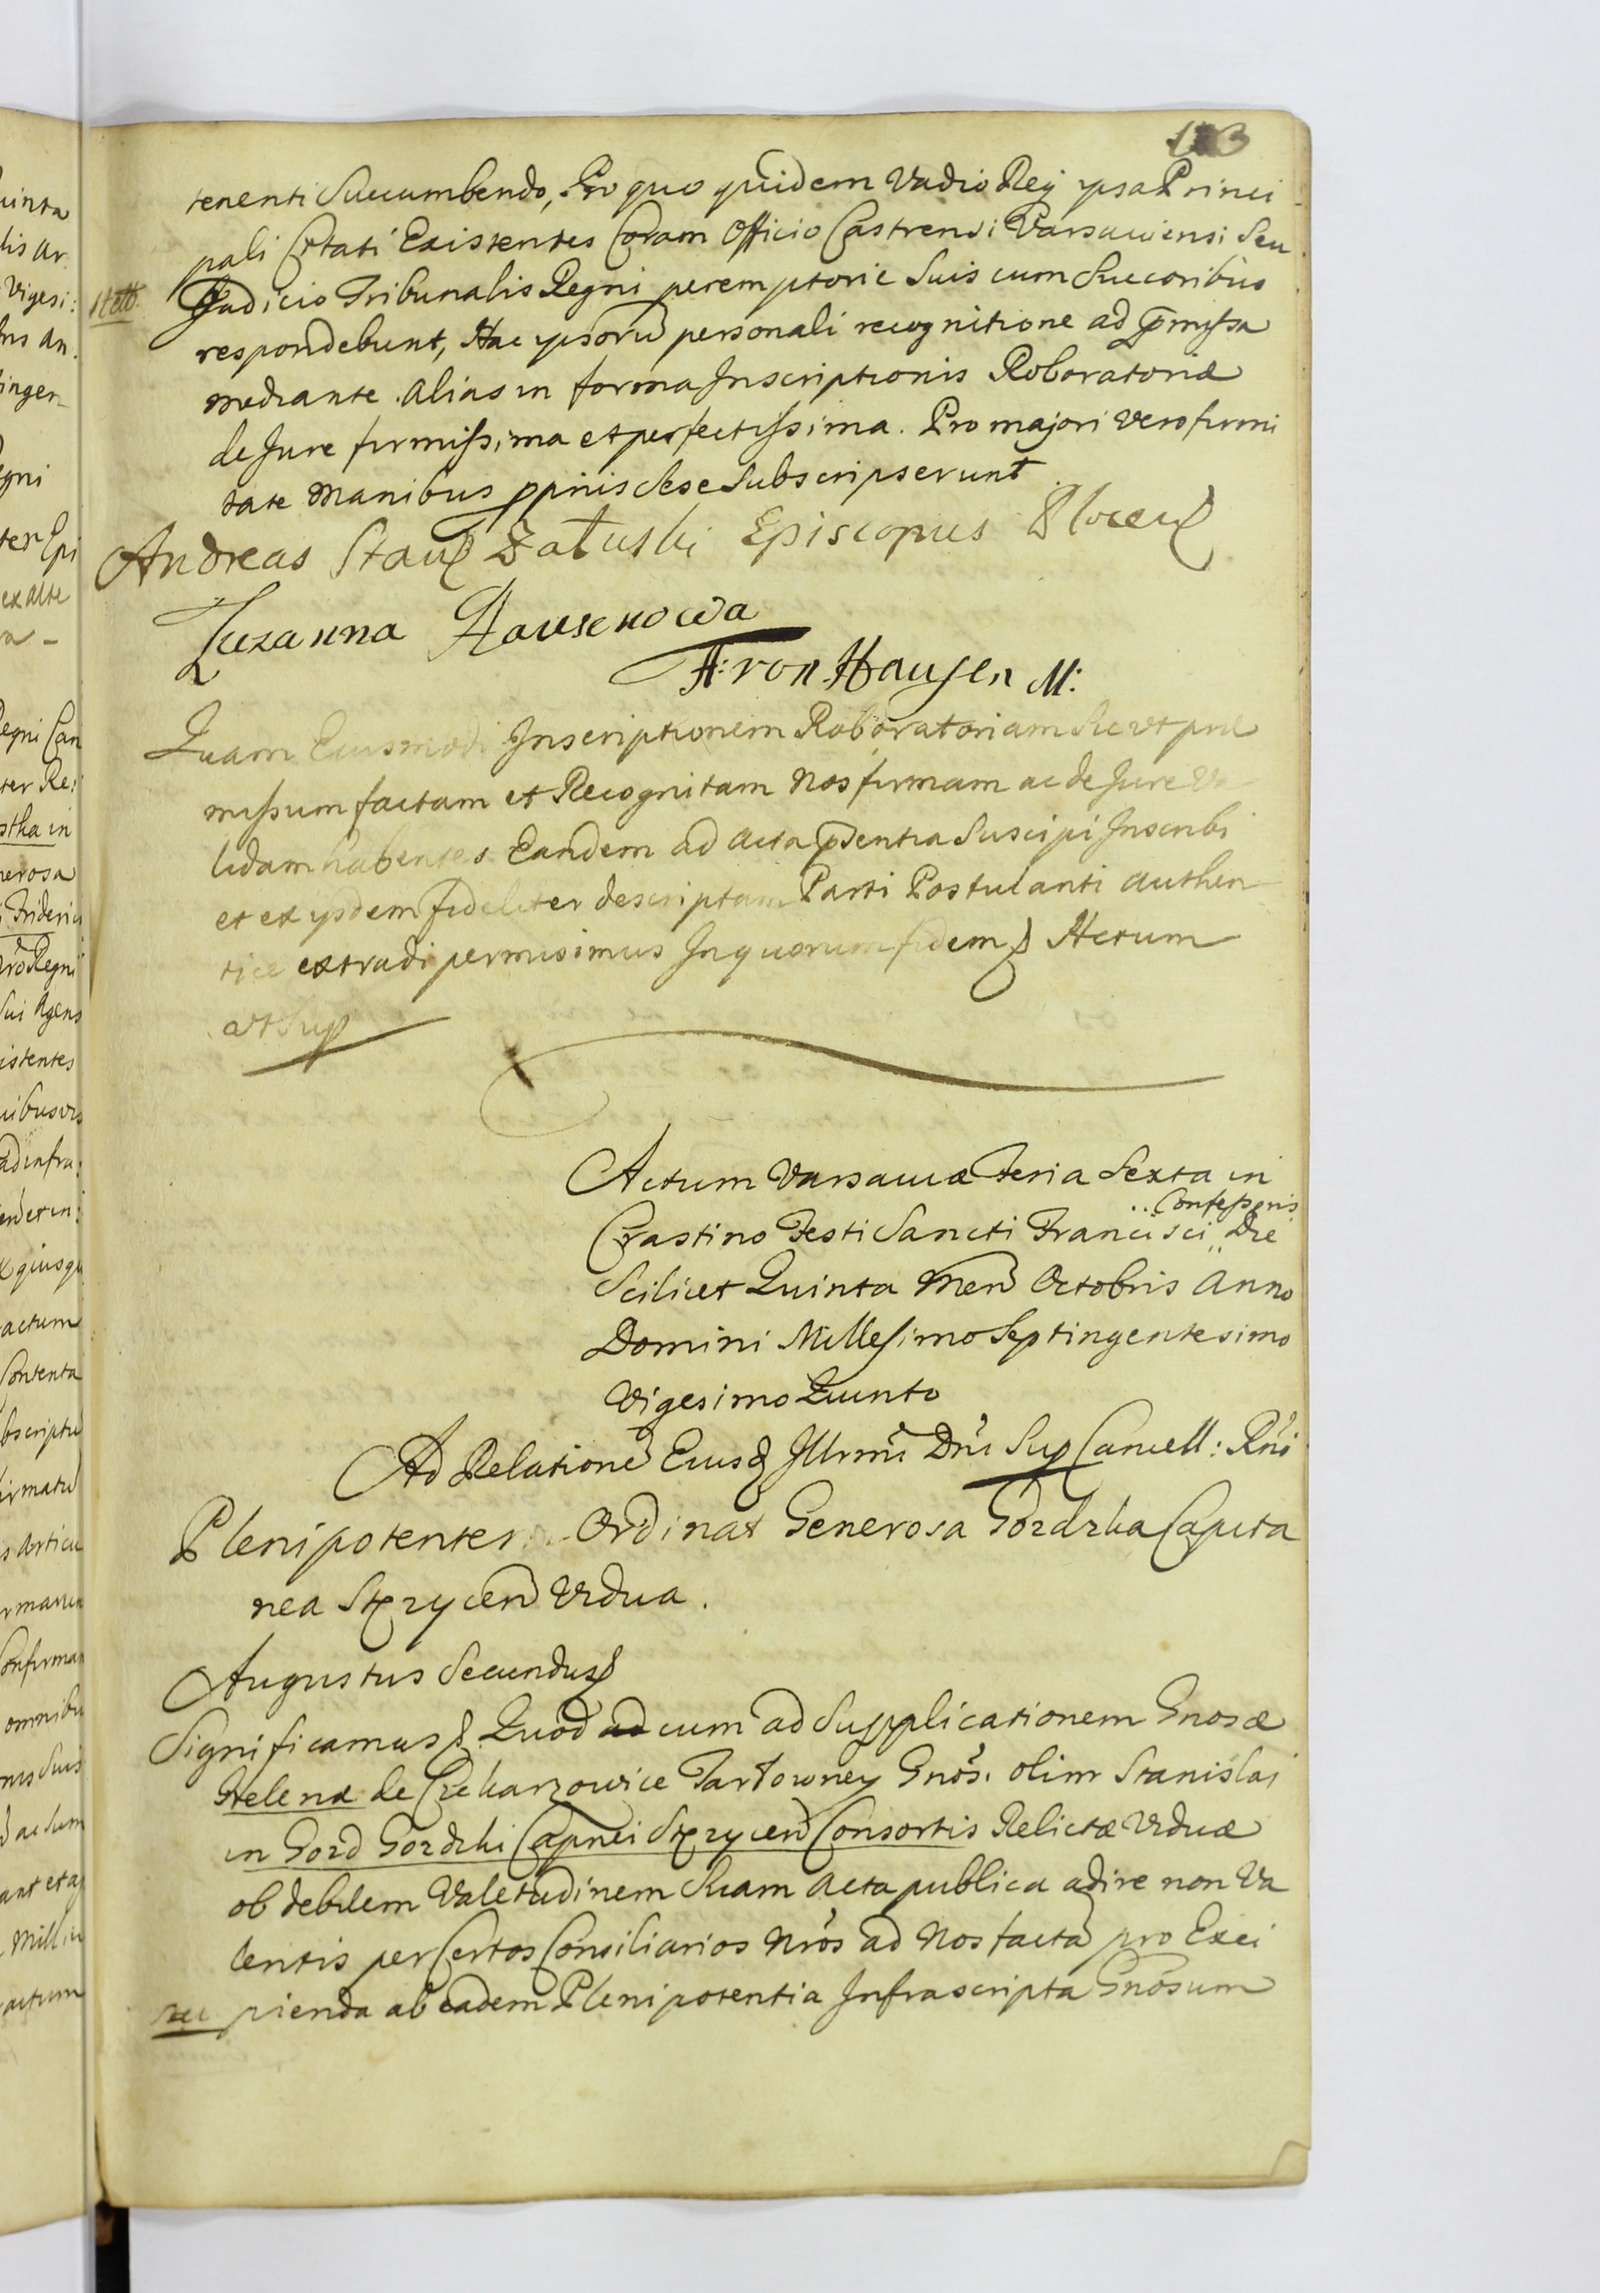 tenenti Succumbendo, Pro quo quidem Vadio Rej ypsa Princi
pali Citati Existentes Coram Officio Castrensi Varsaviensi Seu
Judicio Tribunalis Regni peremptorie Suis cum Succoribus
respondebunt, Hac ypsorū personali recognitione ad p̄missa
mediante. alias in forma Inscriptionis Roboratoriæ
de Jure firmissima et perfectissima. Pro majori Vero firmi
tate manibus pp̄riis Sese Subscripserunt
Andreas Stan Załuski Episcopus Plocen
Zuzanna Hausenowa
F: von Hausen M:
Quam Eiusmodi Inscriptionem Roboratoriam Sicut præ
missum factam et Recognitam Nos firmam ac de Jure Va
lidam habentes Eandem ad acta p̄sentia Suscipi Inscribi
et ex ysdem fideliter descriptam Parti Postulanti authen
tice extradi permisimus In quorum fidem Actum
ut Sup
Actum Varsaviæ Feria Sexta in
Crastino Festi Sancti Francisci Confessoris Die
Scilicet Quinta Men Octobris Anno
Domini Millesimo Septingentesimo
Vigesimo Quinto
Ad Relationē Eiusd Illrmi Dni Sup Cancell: Rni
Plenipotentes Ordinat Generosa Gozdzka Capita
nea Stęzycen Vidua.
Augustus Secundus
Significamus Quod ad cum ad Supplicationem Gnosæ
Helenæ de Czekarzowice Tarłowney Gnos. olim Stanislai
in Gozd Gozdzki Capnei Stęzycen Consortis Relictæ Viduæ
ob debilem Valetudinem Suam Acta publica adire non Va
lentis per Certos Consiliarios Nros ad Nos facta pro Exci
pienda ab eadem Plenipotentia Infrascripta Gnosum